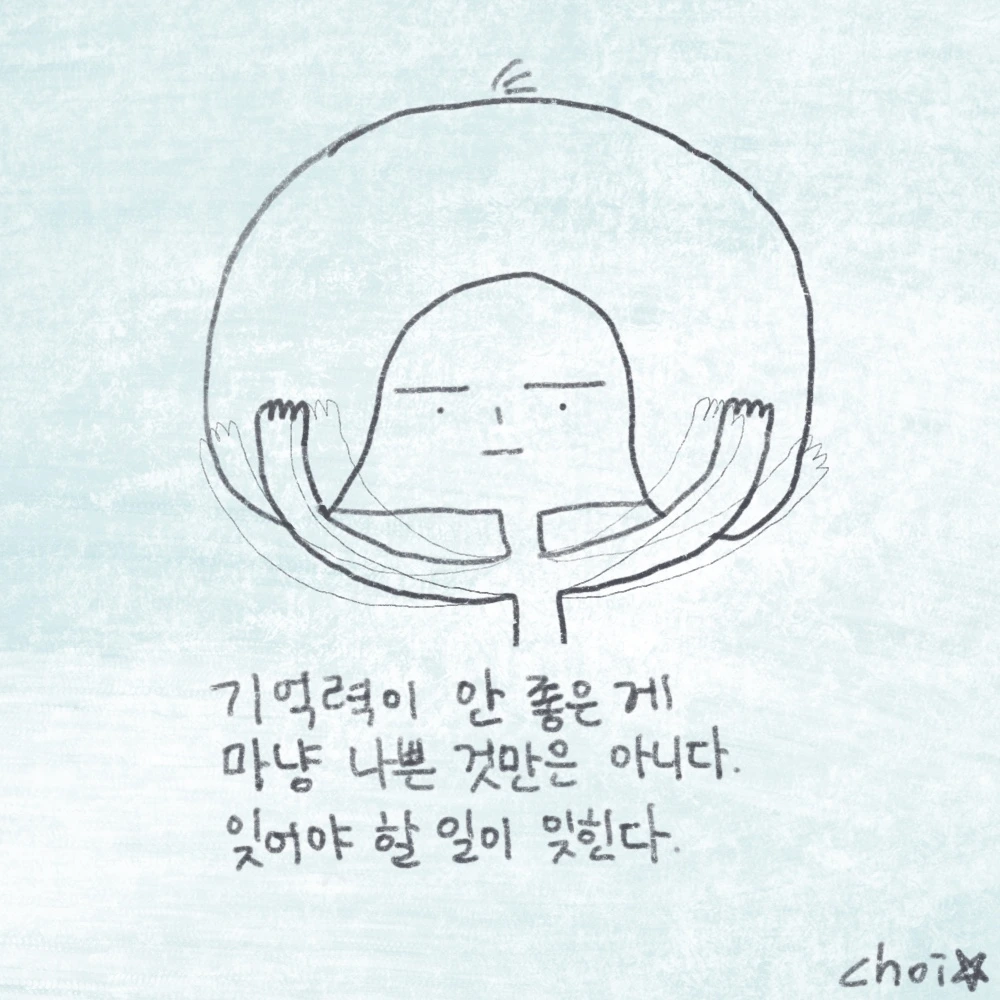 기억력이 안 좋은 게
마냥 나쁜 것만은 아니다.
잊어야 할 일이 잊힌다.
choi☆